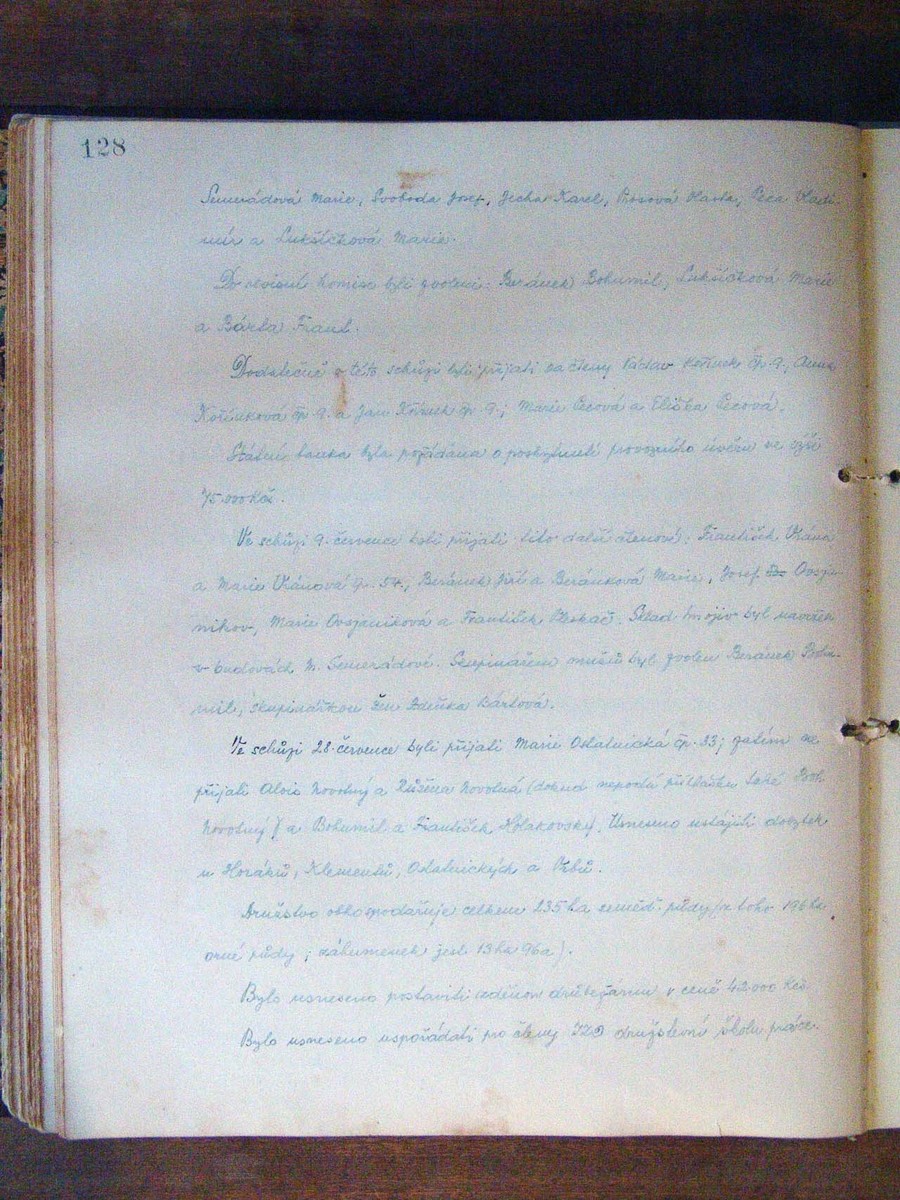 128
Semerádová Marie, Svoboda Josef, Jecha Karel, Vlasta, Peca Vladi-
mír a Lukšíčková Marie.
Do revisní komise byli zvoleni: Beránek Bohumil, Lukšíčková Marie
a Bárta Frant.
Dodatečně v této schůzi byli přijati za členy Václav Kořínek čp. 9., Anna
Kořínková čp. 9. a Jan Kořínek čp. 9.; Marie Pecová a Eliška Pecová.
Státní banka byla požádána o poskytnutí provozního úvěru ve výši
75.000 Kčs.
Ve schůzi 9. července byli přijati tito další členové: František Vrána
a Marie Vránová čp. 54., Beránek Jiří a Beránková Marie, Josef Ovsja-
nikov, Marie Ovsjaniková a František. Sklad hnojiv byl navržen
v budovách N. Semerádové. Skupinářem mužů byl zvolen Beránek Bohu-
mil, skupinářkou žen Zdeňka Bártová.
Ve schůzi 28. července byli přijati Marie Ostatnická čp. 33; zatím ne-
přijati Alois Novotný a Růžena Novotná (dokud nepodá přihlášku také
Novotný) a Bohumil a František Holakovský. Usneseno ustájiti dobytek
u Horáků, Klementů, Ostatnických a Vrbů.
Družstvo obhospodařuje celkem 235 ha zeměd. půdy (z toho 196 ha
orné půdy; záhumenek jest 13 ha 96 a).
Bylo usneseno postaviti zděnou drůbežárnu v ceně 42.000 Kčs.
Bylo usneseno uspořádati pro členy JZD družstevní školu práce.